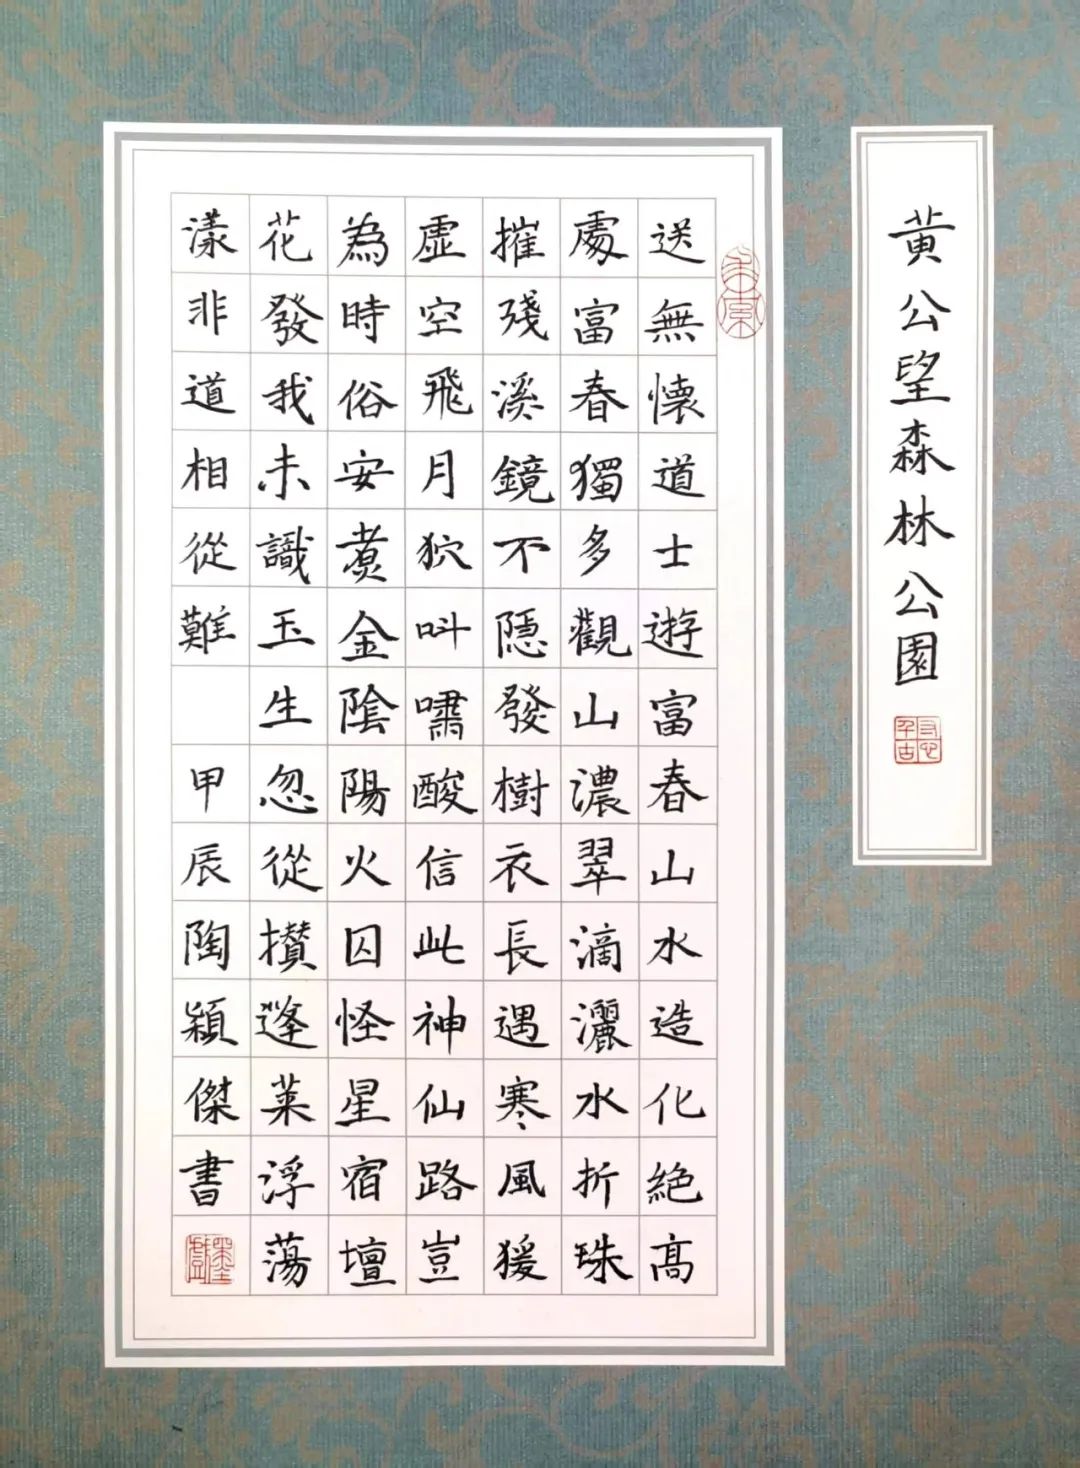 黄公望森林公園
寸心千古
送無懷道士遊富春山水造化絶高
處富春獨多觀山濃翠滴灑水折珠
摧殘溪鏡不隱發樹衣長遇寒風猨
虛空飛月狖叫嘯酸信此神仙路豈
為時俗安煑金陰陽火囚怪星宿壇
花發我未識玉生忽從攢蓬莱浮蕩
漾非道相從難 甲辰陶穎傑書